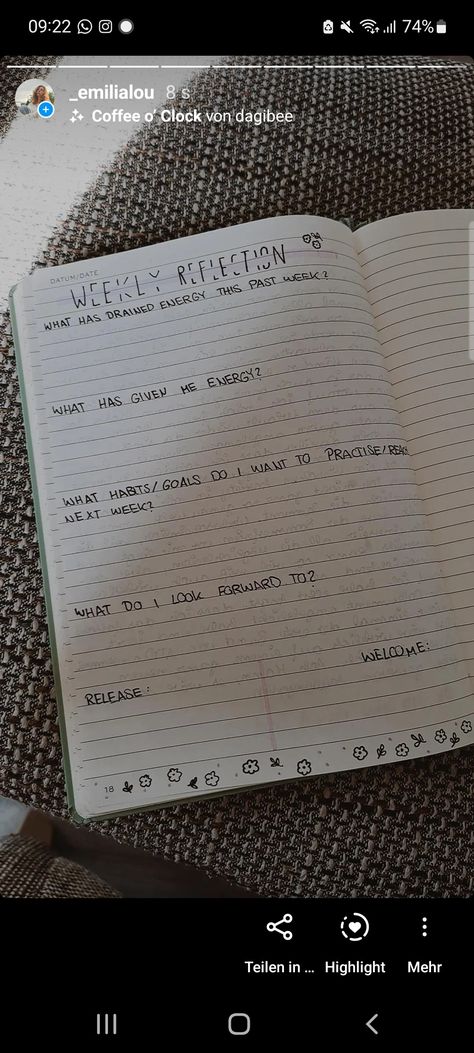 09:22
74%
_emilialou 8 s
Coffee o' Clock von dagibee
DATUM/DATE
WEEKLY REFLECTION
WHAT HAS DRAINED ENERGY THIS PAST WEEK?
WHAT HAS GIVEN ME ENERGY?
WHAT HABITS/GOALS DO I WANT TO PRACTISE/REACH
NEXT WEEK?
WHAT DO I LOOK FORWARD TO?
WELCOME:
RELEASE:
18
Teilen in ...
Highlight
Mehr